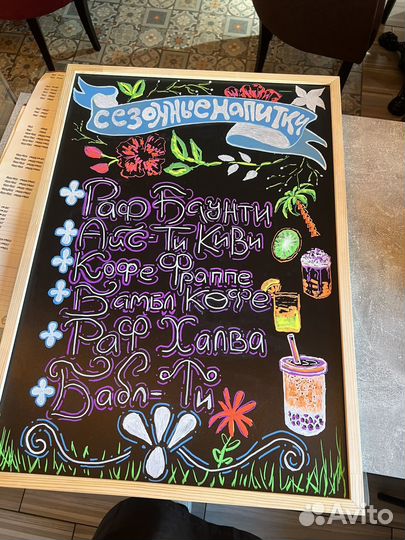 сезонные напитки
Раф Баунти
Айс-Ти Киви
Кофе Фраппе
Бамбл Кофе
Раф Халва
Бабл-Ти
Avito